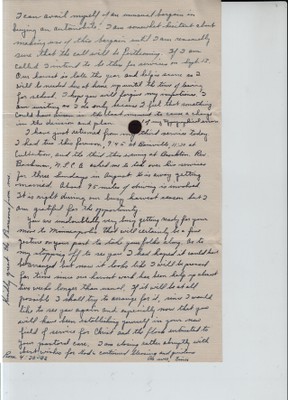 I can avail myself of an unusual bargain in
buying an automobile. I am somewhat hesitant about
making use of this bargain until I am reasonably
sure that the call will be forthcoming. If I am
called I intend to be there for services on Sept. 15.
Our harvest is late this year and help is scarce so I
will be needed here at home up until the time of leaving
for school. I hope you will forgive my impatience. I
am writing as I do only because I feel that something
could have arisen in the latest moment to cause a change
in the decision and plan
I have just returned from my third service today
I had two this forenoon, 9:45 at 11:00 at
and the third this evening at Rev.
asked me to take over his services
for three Sundays in August as he is away getting
married. About 95 miles of driving is involved
It is right during our busy harvest season but I
am grateful for the opportunity
You are undoubtedly very busy getting ready for your
move to Minneapolis that will certainly be a fine
gesture on your part to take your folks along. As to
my stopping off to see you I had hoped it could have
been arranged but now it looks like I will be pressed
for time since our harvest work has been held up about
two weeks longer than usual. If it will be at all
possible I shall try to arrange for it, since I would
like to see you again and especially now that you
will have been establishing yourself in your new
field of service for Christ and the flock entrusted to
your pastoral care. I am closing rather abruptly with
best wishes for God's continued blessing and guidance
Kindly greet the Parsons from me